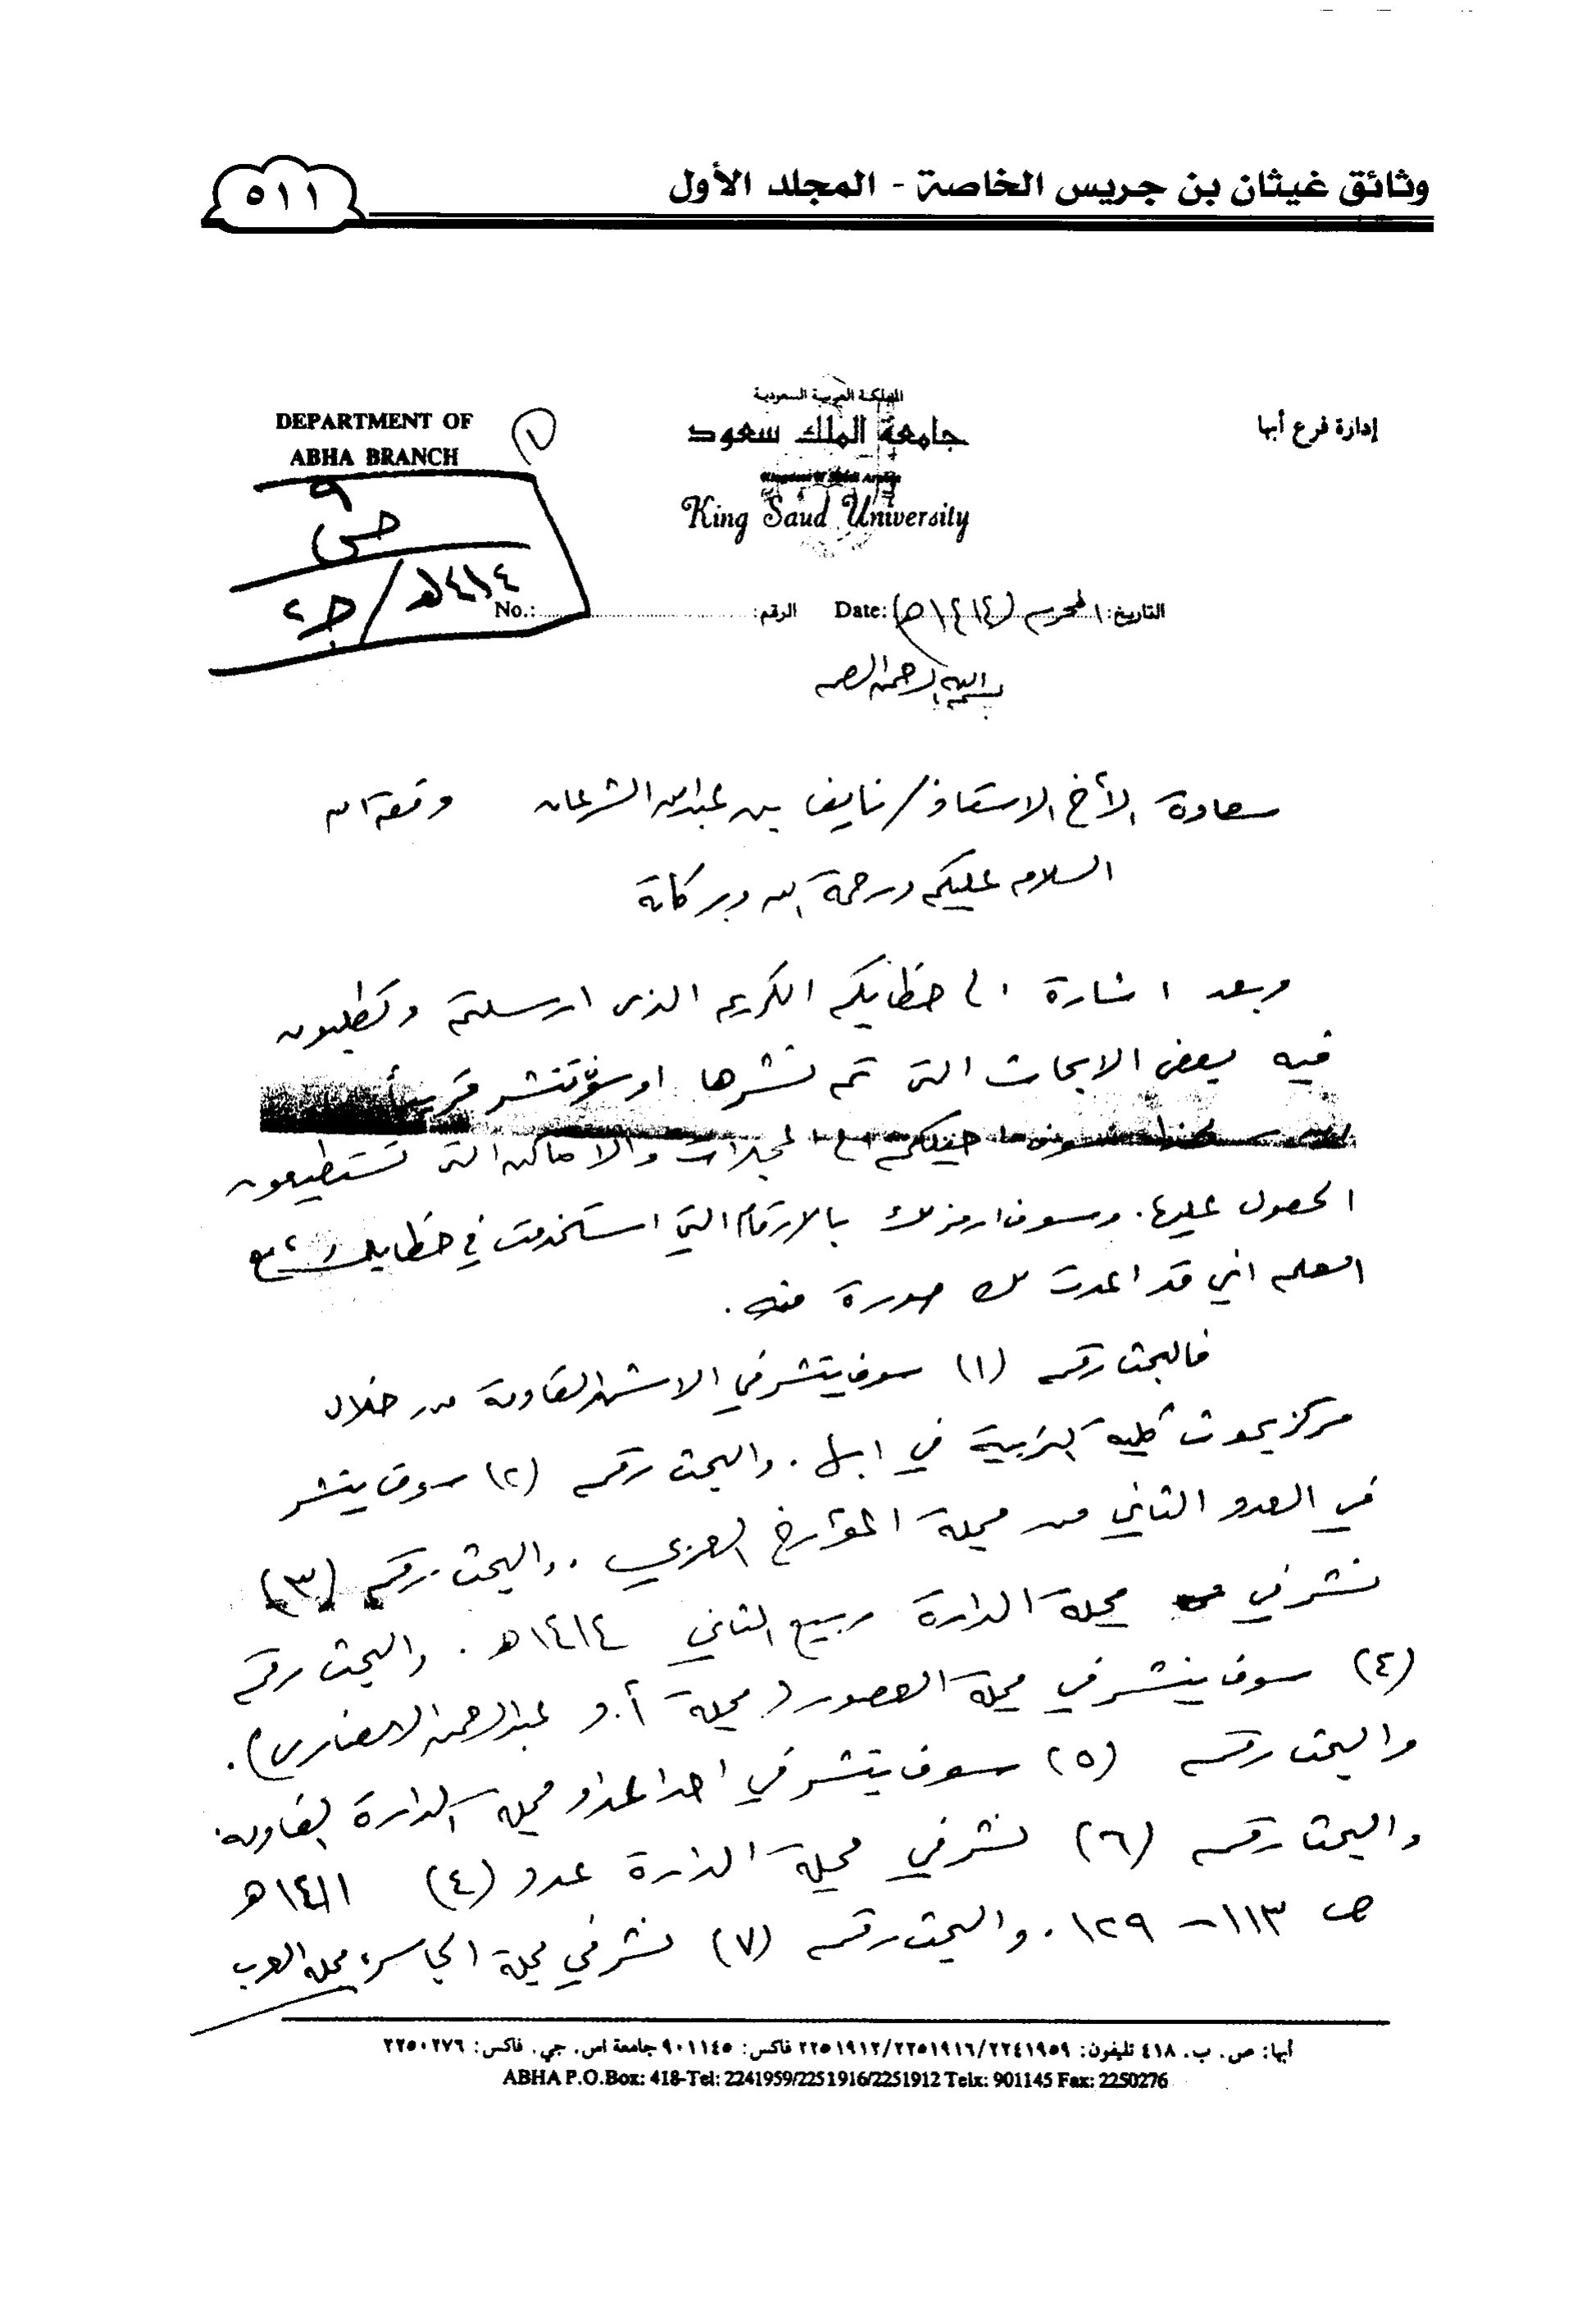 وثائق غيثان بن جريس الخاصة - المجلد الأول
٥١١
إدارة فرع أبها
المملكة العربية السعودية
جامعة الملك سعود
Kingdom of Saudi Arabia
King Saud University
DEPARTMENT OF
ABHA BRANCH
١٤١٤هـ / ج٢
التاريخ: ١ محرم (١٤١٤هـ) Date: الرقم: No.:
بسم الله الرحمن الرحيم
سعادة الأخ الاستاذ / نايف بن عبدالله الشرعان وفقه الله
السلام عليكم ورحمة الله وبركاته
وبعد اشارة الى خطابكم الكريم الذي ارسلتم وتطلبون
فيه بعض الابحاث التي تم نشرها او سوف تنشر قريباً
سوف احيلكم الى المجلات والاماكن التي تستطيعون
الحصول عليها. وسوف ارمز لك بالارقام التي استخدمت في خطابك مع
العلم اني قد اعدت لك صورة منه.
فالبحث رقم (١) سوف ينشر في الاشهر القادمة من خلال
مركز بحوث كلية التربية في ابها. والبحث رقم (٢) سوف ينشر
في العدد الثاني من مجلة المؤرخ العربي. والبحث رقم (٣)
نشر في مجلة الدارة ربيع الثاني ١٤١٤هـ. والبحث رقم
(٤) سوف ينشر في مجلة العصور (مجلة أ.د عبدالرحمن الانصاري).
والبحث رقم (٥) سوف ينشر في احد اعداد مجلة الدارة القادمة.
والبحث رقم (٦) نشر في مجلة الدارة عدد (٤) ١٤١١هـ
ص ١١٣ - ١٢٩. والبحث رقم (٧) نشر في مجلة الجاسر، مجلة العرب
أبها: ص. ب. ٤١٨ تليفون: ٢٢٤١٩٥٩/٢٢٥١٩١٦/٢٢٥١٩١٢ فاكس: ٩٠١١٤٥ جامعة اس. جي. فاكس: ٢٢٥٠٢٧٦
ABHA P.O.Box: 418-Tel: 2241959/2251916/2251912 Telx: 901145 Fax: 2250276